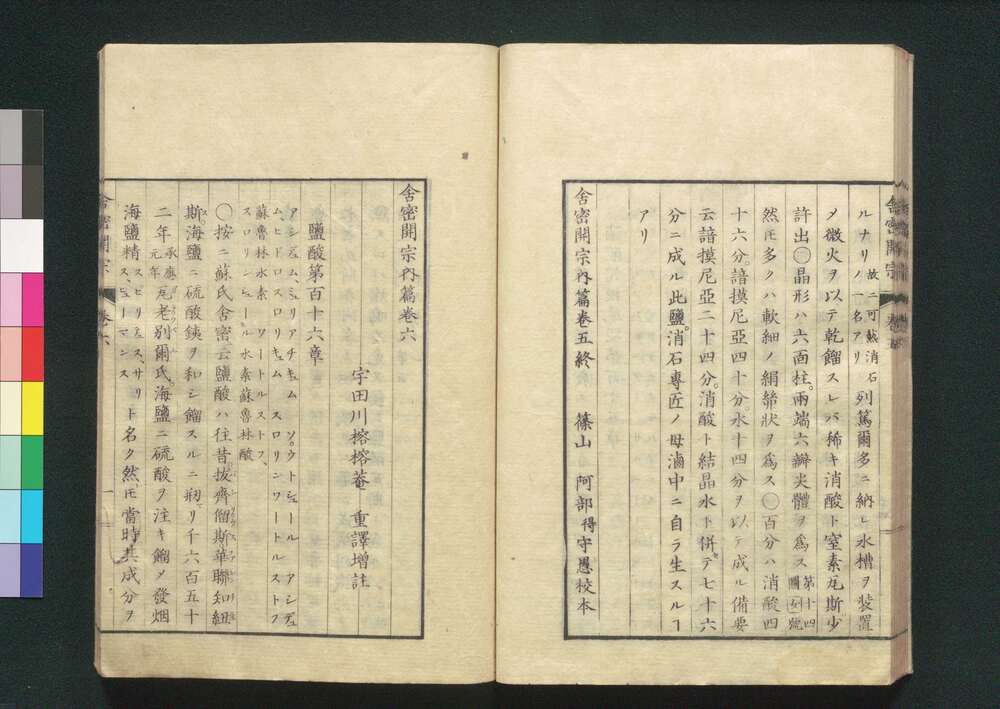 ルナリ故ニ可燃消石ノ一名アリ列篤爾多ニ納レ水槽ヲ裝置
〆微火ヲ以テ乾餾スレバ稀キ消酸ト窒素瓦斯少
許出〇晶形ハ六面柱。兩端六瓣尖體ヲ爲ス第十四圖女號
然𪜈多クハ軟細ノ絹絲狀ヲ爲ス〇百分ハ消酸四
十六分。諳摸尼亞四十分。水十四分ヲ以テ成ル備要
云諳摸尼亞二十四分。消酸ト結晶水ト併テ七十六
分ニ成ル此鹽。消石專匠ノ母滷中ニ自ラ生スルヿ
アリ
舍密開宗內篇卷五終
篠山 阿部得守愚校本
舍密開宗
舍密開宗內篇卷六
宇田川榕榕菴 重譯增註
鹽酸第百十六章
アシヂュム、ミュリアチキュム ソ。ウトシュール アシヂュ
ム、ヒドロスロリキュム スロリンワートルストフ
蘇魯林水素 ソートルストフ、
スロリンシュール 水素蘇魯林酸
〇按ニ蘇氏舍密云鹽酸ハ往昔拔齊僧斯華聯知紐
斯海鹽ニ硫酸銕ヲ和シ餾スルニ剏リ千六百五十
二年承應元年瓦老別爾氏。海鹽ニ硫酸ヲ注キ餾〆發烟
海鹽精スピリチュス、サリス、ヒューマンストト名ク然𪜈當時其成分ヲ
舍密開宗
卷六
一